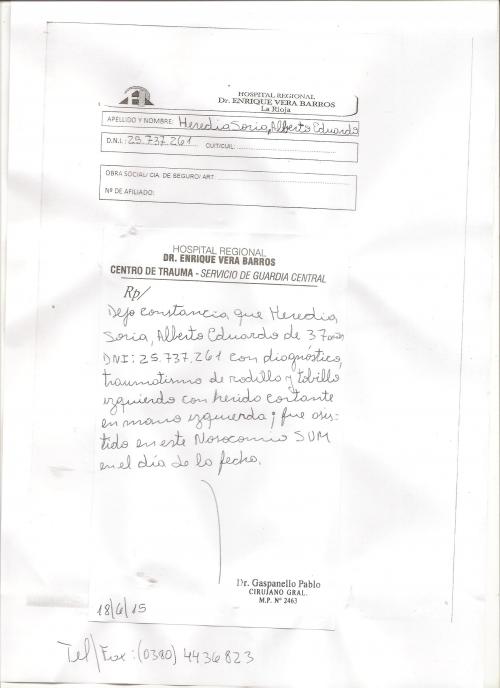 HOSPITAL REGIONAL
Dr. ENRIQUE VERA BARROS
La Rioja
APELLIDO Y NOMBRE: Heredia Soria, Alberto Eduardo
D.N.I.: 25.737.261 CUIT/CUIL:
OBRA SOCIAL/ CIA. DE SEGURO/ ART
Nº DE AFILIADO:
HOSPITAL REGIONAL
DR. ENRIQUE VERA BARROS
CENTRO DE TRAUMA - SERVICIO DE GUARDIA CENTRAL
Rp/
Dejo constancia que Heredia
Soria, Alberto Eduardo de 37 años
DNI: 25.737.261 con diagnóstico,
traumatismo de rodilla y tobillo
izquierdo con herida cortante
en mano izquierda; fue asis-
tido en este Nosocomio SUM
en el día de la fecha.
Dr. Gaspanello Pablo
CIRUJANO GRAL.
M.P. Nº 2463
18/6/15
Tel/Fax: (0380) 4436823